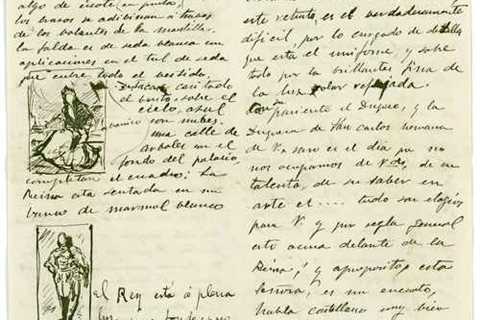 algo de escote en punta,
los brazos se adivinan a traves
de los volantes de la mantilla,
la falda es de seda blanca con
aplicaciones en el tul de seda
que cubre todo el vestido.
Destacan casi todo
el busto, sobre el
cielo, azul
con nubes.
una calle de
arboles en el
fondo del palacio,
completan el cuadro; la
Reina esta sentada en un
banco de marmol blanco
el Rey está á plena
este retrato, es el verdaderamente
dificil, por lo cargado de detalles
que esta el uniforme, y sobre
todo por la brillantez fina de
la luz solar reflejada.
pariente el Duque, y la
Duquesa de San Carlos hermana
de V. raro es el dia que no
nos ocupamos de V. de su
talento, de su saber en
arte el .... todo son elogios
para V. y por regla general
esto acurre delante de la
Reina; y apropósito, esta
Señora, es un encanto,
habla castellano muy bien